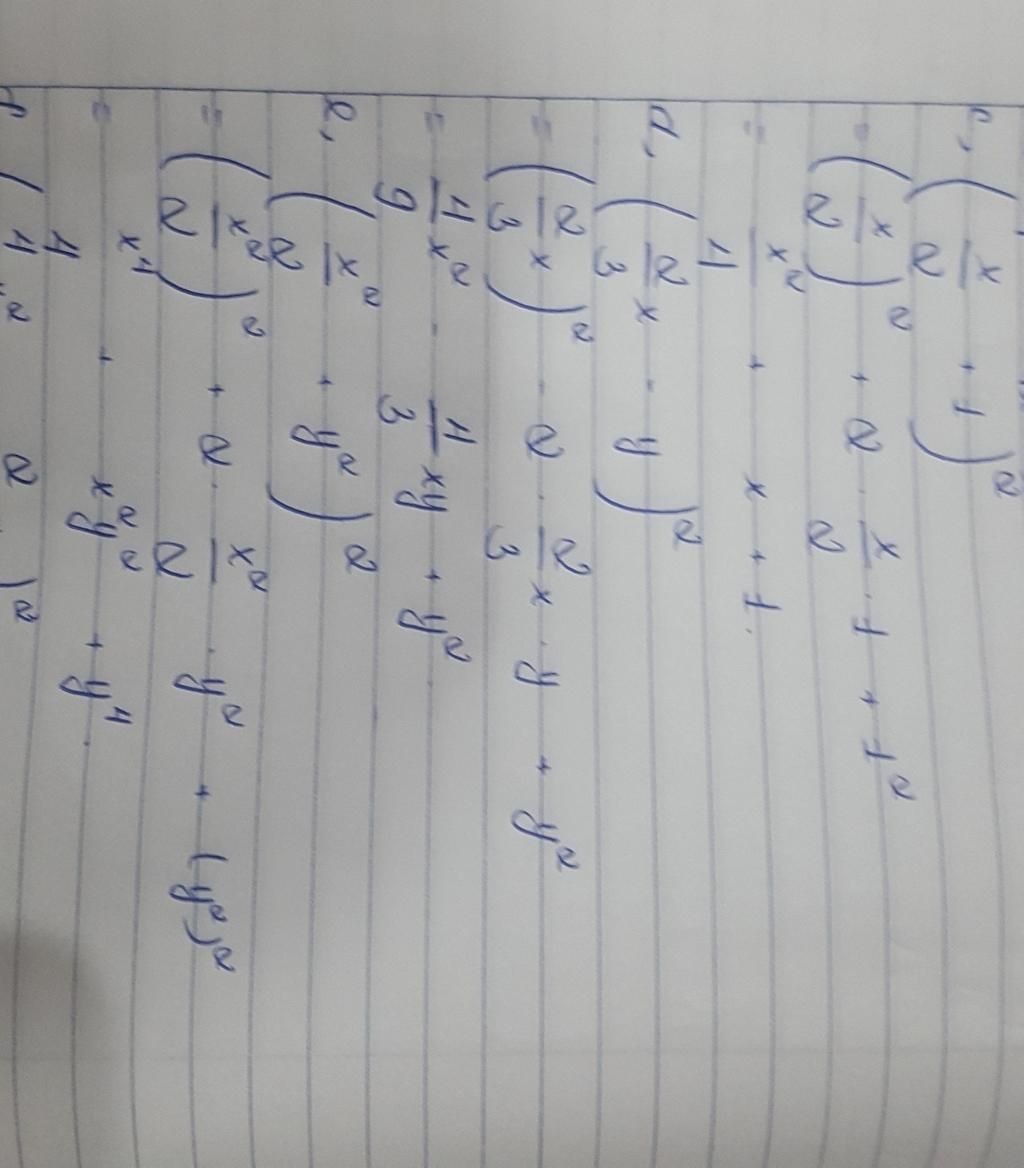 c, (x/2 + 1)²
= (x/2)² + 2 . x/2 . 1 + 1²
= x²/4 + x + 1.
d, (2/3 x - y)²
= (2/3 x)² - 2 . 2/3 x . y + y²
= 4/9 x² - 4/3 xy + y²
e, (x²/2 + y²)²
= (x²/2)² + 2 . x²/2 . y² + (y²)²
= x⁴/4 + x²y² + y⁴.